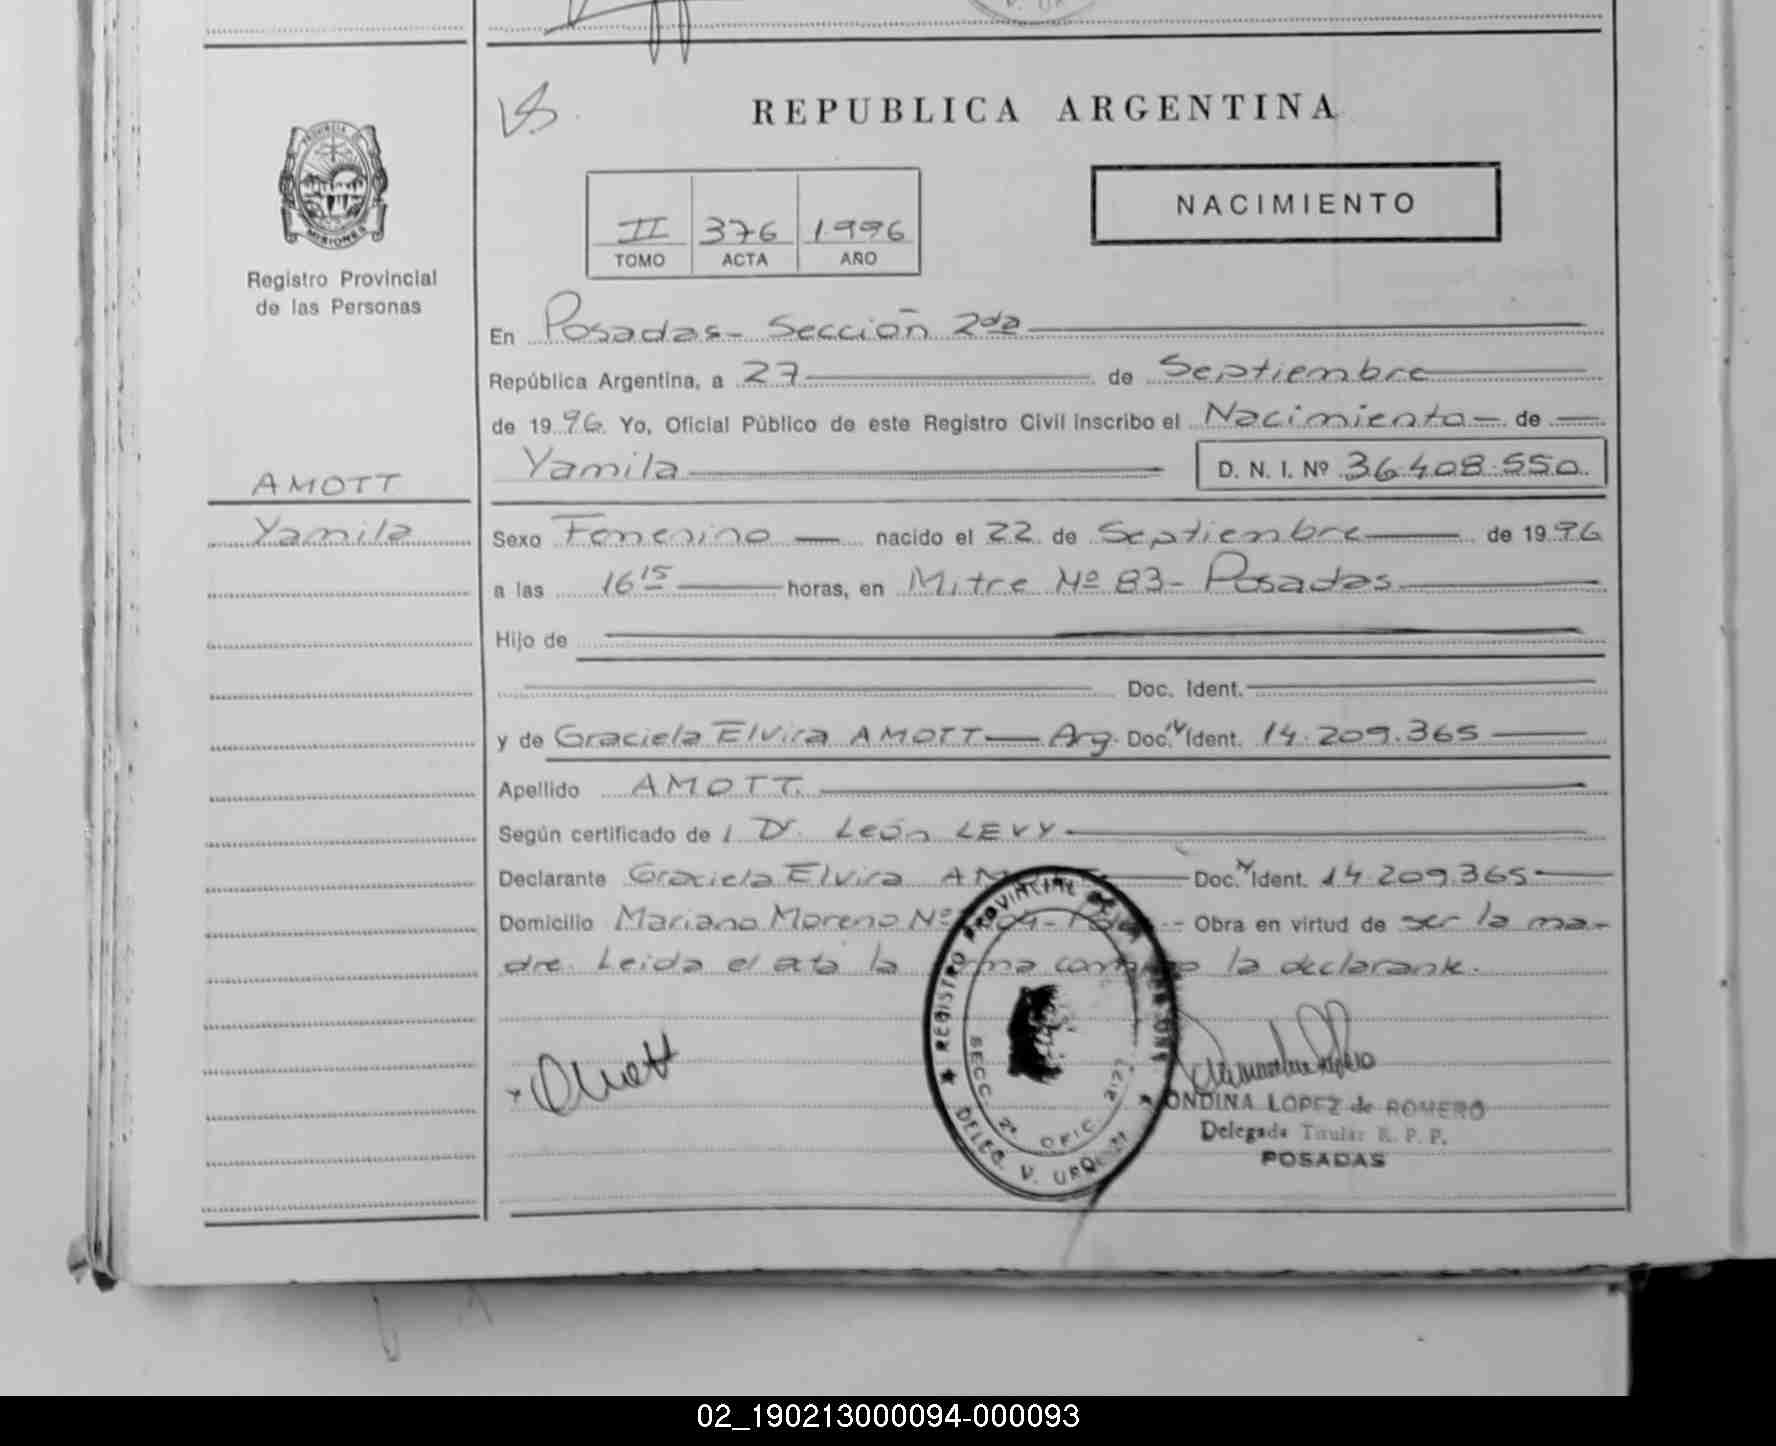 REPUBLICA ARGENTINA
NACIMIENTO
II 376 1996
TOMO ACTA AÑO
PROVINCIA DE
MISIONES
Registro Provincial
de las Personas
AMOTT
Yamila
En Posadas- Sección 2da
República Argentina, a 27 de Septiembre
de 1996. Yo, Oficial Público de este Registro Civil inscribo el Nacimiento de
Yamila D. N. I. Nº 36.408.550.
Sexo Femenino nacido el 22 de Septiembre de 1996
a las 16 15 horas, en Mitre Nº 83- Posadas
Hijo de
Doc. Ident.
y de Graciela Elvira AMOTT Arg. Doc. N Ident. 14.209.365
Apellido AMOTT.
Según certificado de / Dr. León LEVY
Declarante Graciela Elvira Doc. N Ident. 14.209.365
Domicilio Mariano Moreno Nº - Obra en virtud de ser la ma-
dre. Leida el acta la la declarante.
Amott
REGISTRO PROVINCIAL DE LAS PERSONAS
SECC. 2ª OFIC.
DELEG. V. URQUIZA
ONDINA LOPEZ de ROMERO
Delegada Titular R. P. P.
POSADAS
02_190213000094-000093